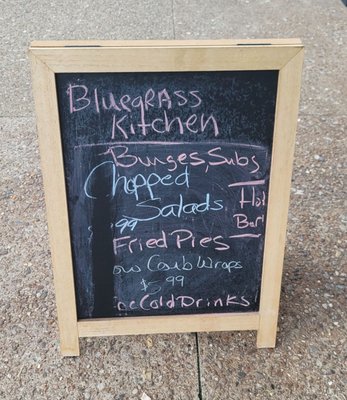 Bluegrass
Kitchen
Burges, Subs
Chopped
Salads
99
Hot
Bar
Fried Pies
Low Carb Wraps
$5.99
Ice Cold Drinks!